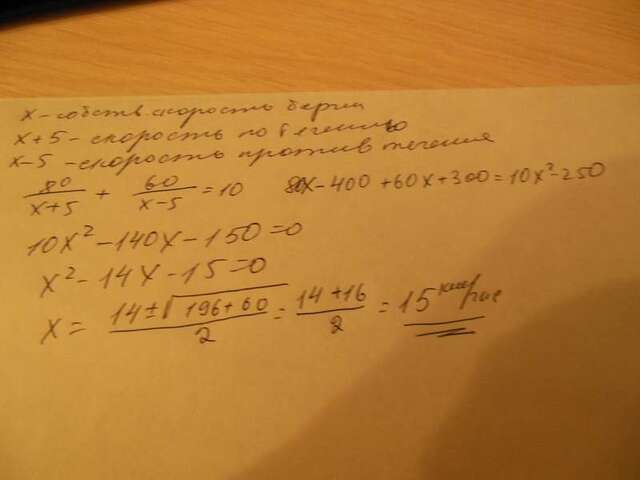 x – собств. скорость баржи
x+5 – скорость по течению
x–5 – скорость против течения
80/(x+5) + 60/(x–5) = 10 80x – 400 + 60x + 300 = 10x² – 250
10x² – 140x – 150 = 0
x² – 14x – 15 = 0
x = (14 ± √(196 + 60))/2 = (14 + 16)/2 = 15 км/час